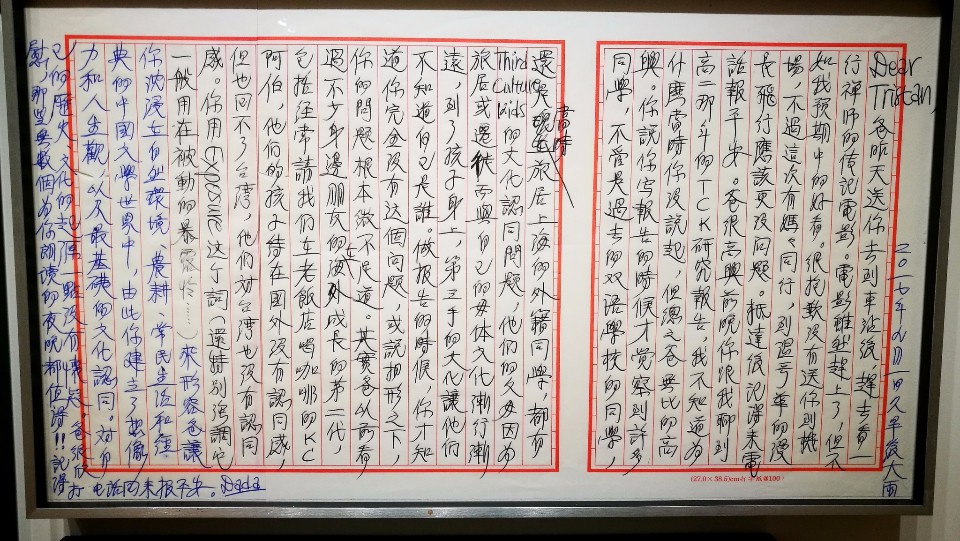 二〇一七年九月一日久旱後大雨
Dear Tristan, 爸昨天送你去到車站後,趕去看一
行禪师的传記電影。電影雖然趕上了,但不
如我預期中的好看。很抱歉没有送你到機
場,不過這次有媽々同行,的漫
長飛行應該更没問題。抵達後記得來電
話報平安。爸很高興前晚你跟我聊到
高一那年的TCK研究報告,我不知道為
什麼當時你没説起,但總之爸無比的高
興。你說你寫報告的時候才覺察到許多
同學,不管是過去的双语學校的同學,
還是當時旅居上海的外籍同學,都有
Third Culture Kids的文化認同問題,他們的父母因為
旅居或遷徙而與自己的母体文化漸行漸
遠,到了孩子身上,第三手的文化讓他們
不知道自己是誰。做报告的時候你才知
道你完全没有这個问题,或説相形之下,
你的問題根本微不足道。其實爸以前看
過不少身邊朋友的在海外成長的第二代,
包括往常請我们去老飯店喝咖啡的KC
阿伯,他们的孩子待在國外没有認同感,
但也回不了台湾,他们对台湾也没有認同
感。你用expose这个詞(還特别强調它
一般用在被動的暴露於……)來形容爸讓
你沈浸在自然環境、農耕、常民生活和經
典的中國文學世界中,由此你建立了想像
力和人生觀,以及最基礎的文化認同。对自
己的歷史、文化的一點没有懷疑。爸很欣
慰,那些無數個为你朗讀的夜晚都值得!!記得
打电话回来报平安。Dada